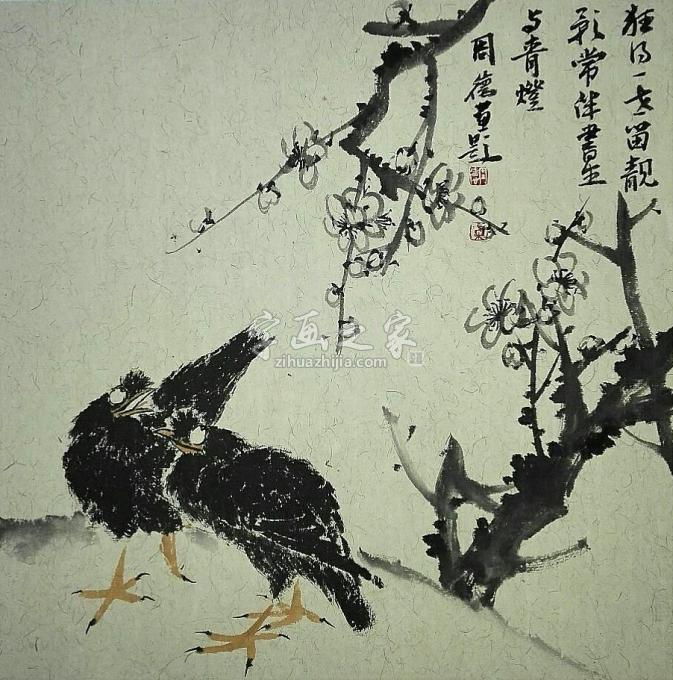 狂得一世留靓
影常伴书生
与青燈
周德画题
字画之家
zihuazhijia.com